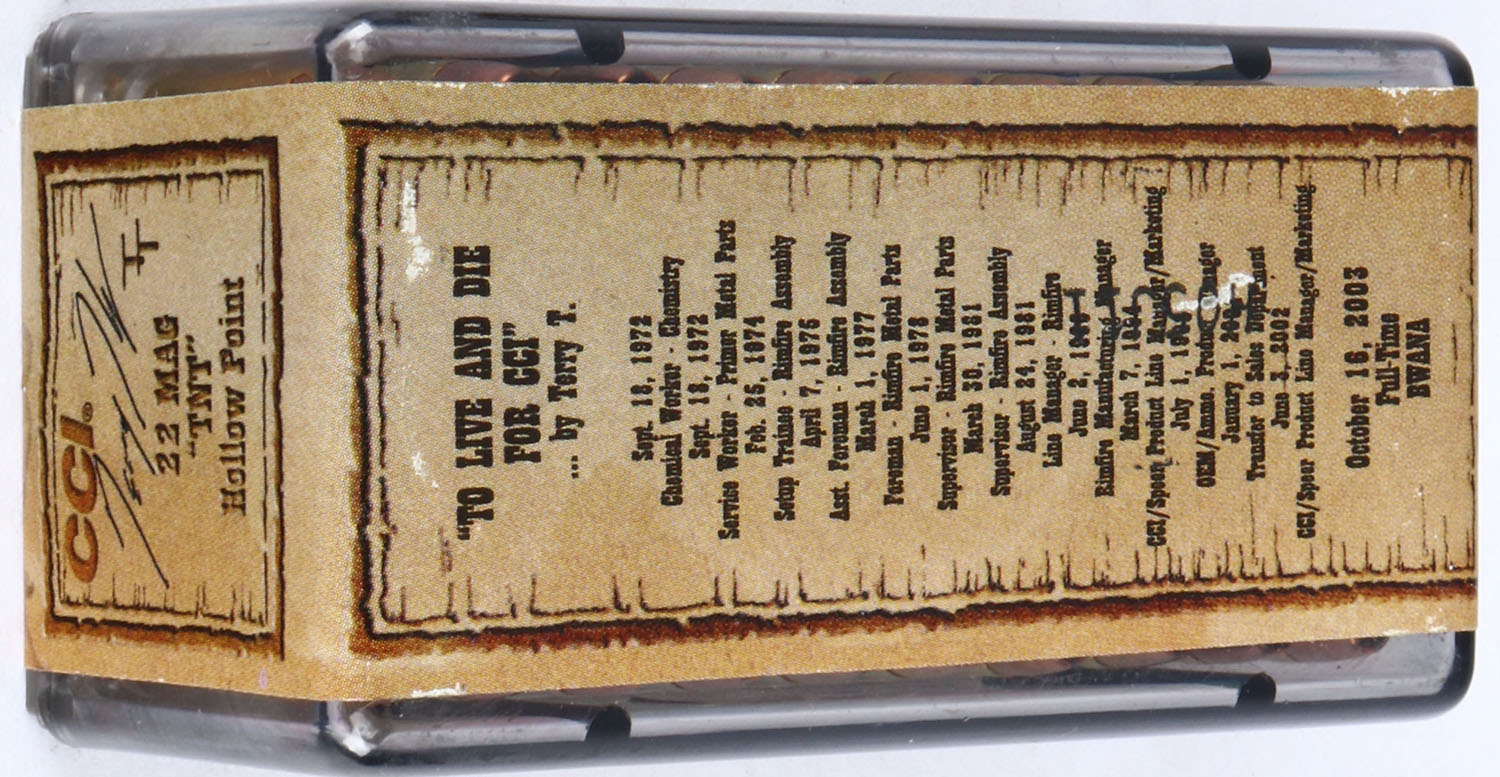 CCI®
22 MAG
"TNT"
Hollow Point
TT
"TO LIVE AND DIE
FOR CCI"
... by Terry T.
Sept. 18, 1972
Chemical Worker - Chemistry
Sept. 18, 1972
Service Worker - Primer Metal Parts
Feb. 25, 1974
Setup Trainee - Rimfire Assembly
April 7, 1975
Asst. Foreman - Rimfire Assembly
March 1, 1977
Foreman - Rimfire Metal Parts
June 1, 1978
Supervisor - Rimfire Metal Parts
March 30, 1981
Supervisor - Rimfire Assembly
August 24, 1981
Line Manager - Rimfire
June 2,
Rimfire Manufacturing Manager
March 7,
CCI/Speer Product Line Manager/Marketing
July 1,
OEM/Ammo. Product Manager
January 1,
Transfer to Sales Department
June 3, 2002
CCI/Speer Product Line Manager/Marketing
October 16, 2003
Full-Time
BWANA